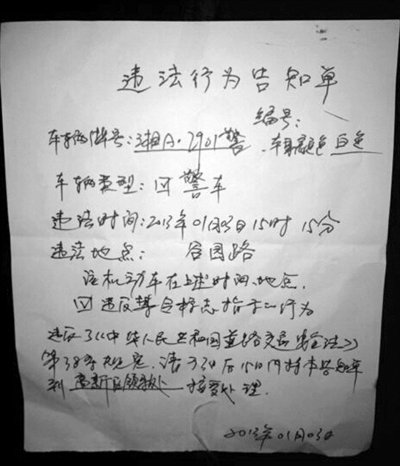 违法行为告知单
编号：
车辆牌号：湘A·2901警 车身颜色 白色
车辆类型：☑ 警车
违法时间：2013年01月03日15时15分
违法地点： 谷园路
该机动车在上述时间、地点，
☑ 违反禁令标志指示的行为
违反了《中华人民共和国道路交通安全法》
第38条规定，请于3日后15日内持本告知单
到 接受处理.
2013年01月03日